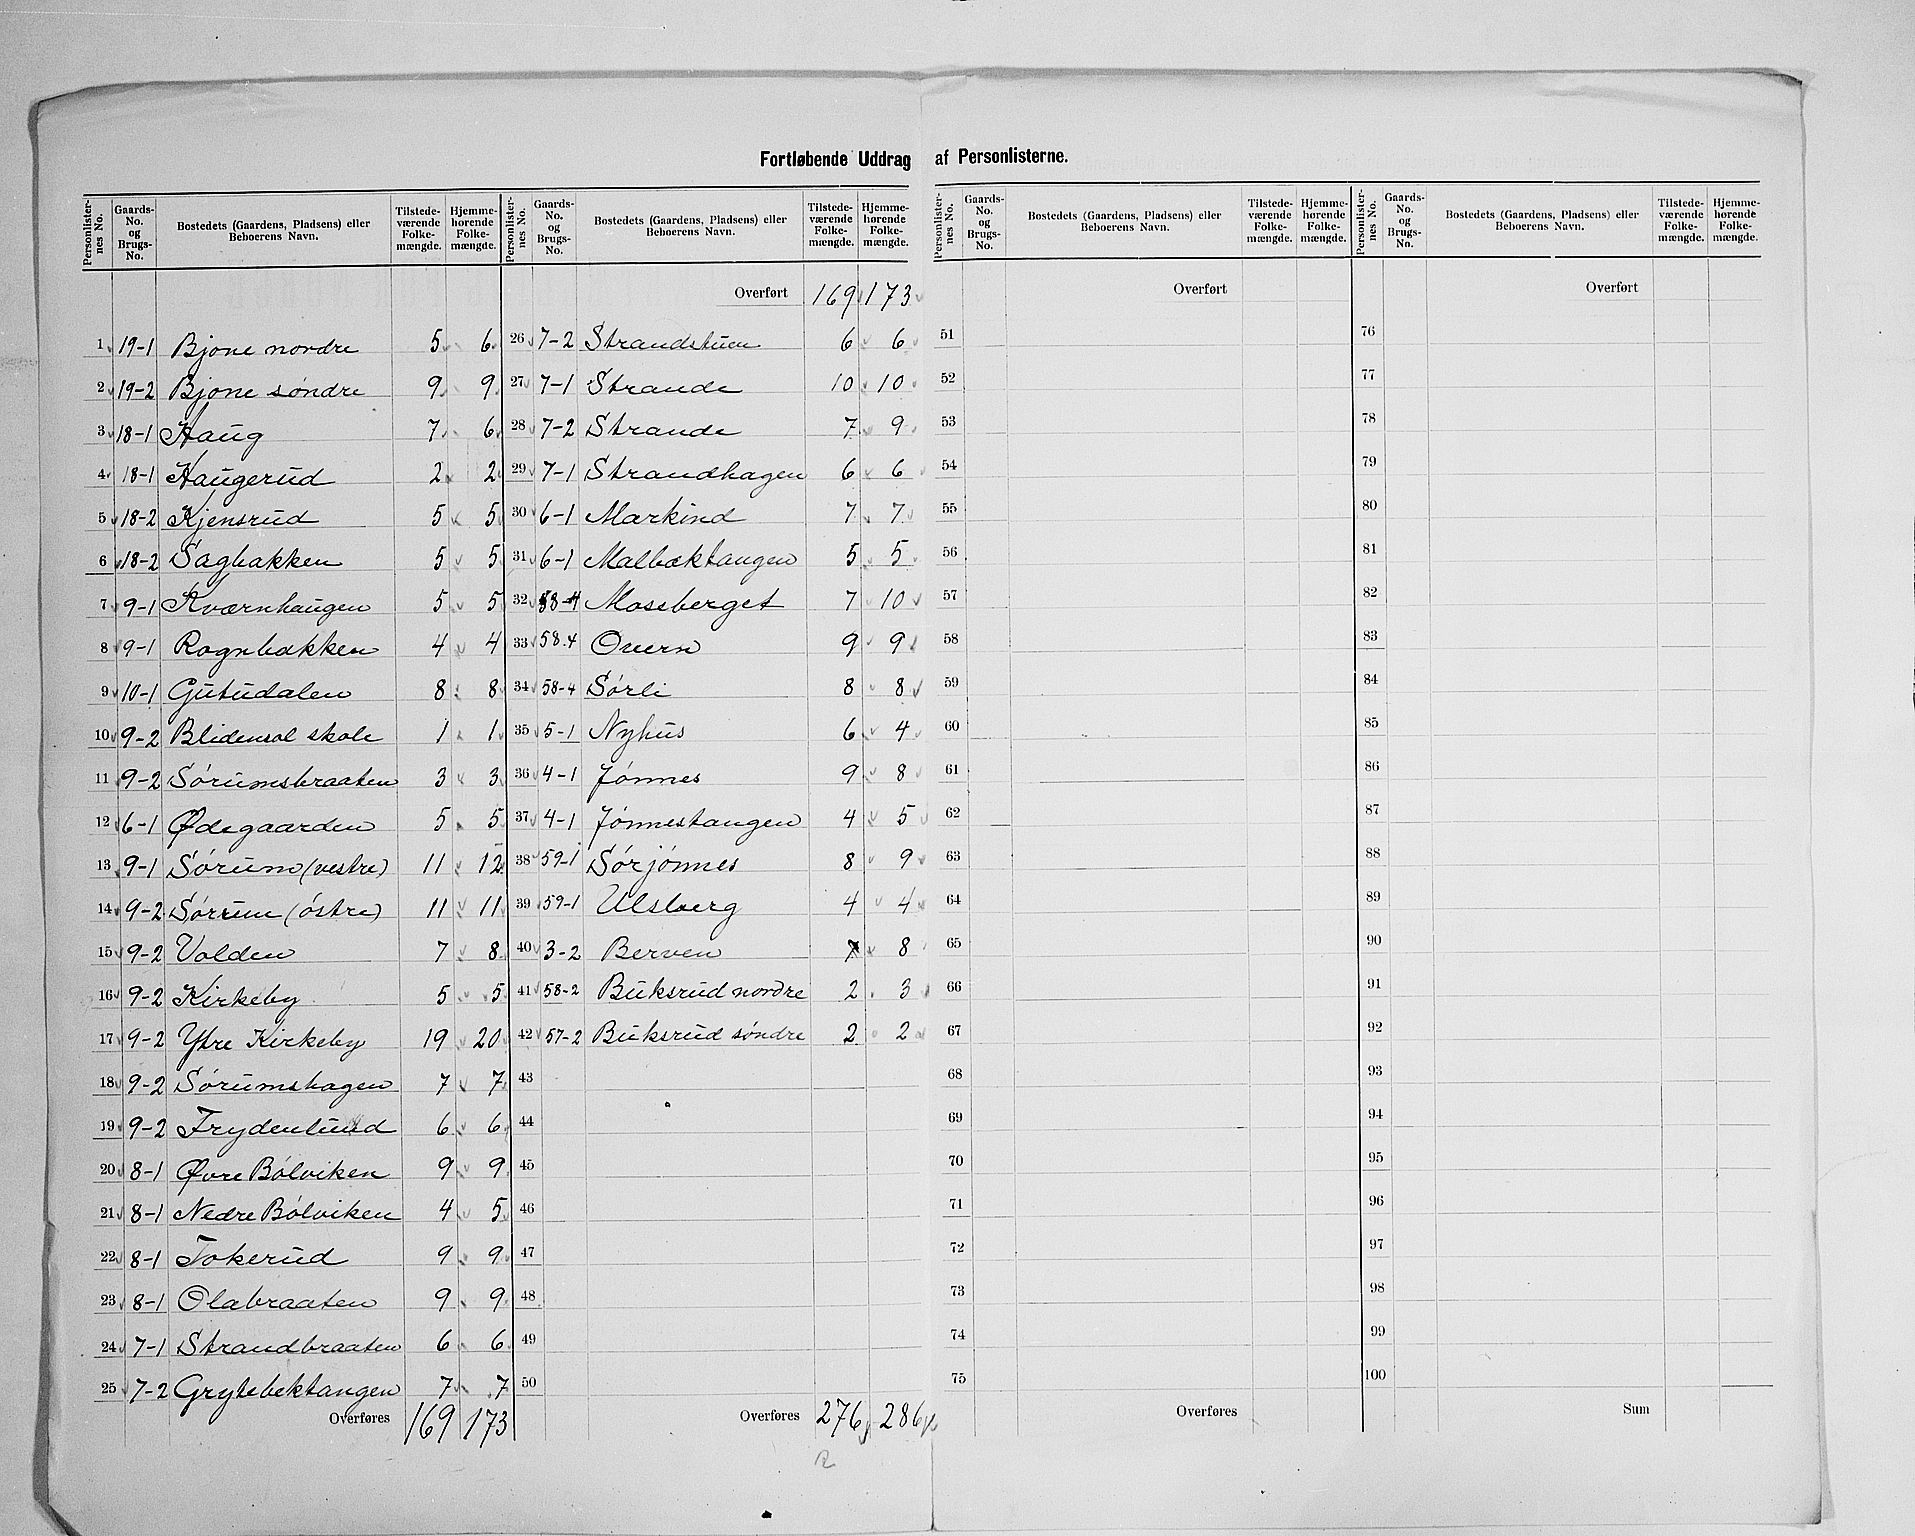 Fortløbende Uddrag af Personlisterne.
Personlisternes No. Gaards-No. og Brugs-No. Bostedets (Gaardens, Pladsens) eller Beboerens Navn. Tilstedeværende Folkemængde. Hjemmehørende Folkemængde.
1 19-1 Bjone nordre 5 6
2 19-2 Bjone søndre 9 9
3 18-1 Haug 7 6
4 18-1 Haugerud 2 2
5 18-2 Kjensrud 5 5
6 18-2 Sagbakken 5 5
7 9-1 Kværnhaugen 5 5
8 9-1 Rognbakken 4 4
9 10-1 Gutudalen 8 8
10 9-2 Blidensol skole 1 1
11 9-2 Sørumsbraaten 3 3
12 6-1 Ødegaarden 5 5
13 9-1 Sørum (vestre) 11 12
14 9-2 Sørum (østre) 11 11
15 9-2 Volden 7 8
16 9-2 Kirkeby 5 5
17 9-2 Ytre Kirkeby 19 20
18 9-2 Sørumshagen 7 7
19 9-2 Frydenlund 6 6
20 8-1 Øvre Bølviken 9 9
21 8-1 Nedre Bølviken 4 5
22 8-1 Tokerud 9 9
23 8-1 Olabraaten 9 9
24 7-1 Strandbraaten 6 6
25 7-2 Grytebektangen 7 7
Overføres 169 173
Personlisternes No. Gaards-No. og Brugs-No. Bostedets (Gaardens, Pladsens) eller Beboerens Navn. Tilstedeværende Folkemængde. Hjemmehørende Folkemængde.
Overført 169 173
26 7-2 Strandstuen 6 6
27 7-1 Strande 10 10
28 7-2 Strande 7 9
29 7-1 Strandhagen 6 6
30 6-1 Markind 7 7
31 6-1 Malbæktangen 5 5
32 58-4 Mosseberget 7 10
33 58.4 Overn 9 9
34 58-4 Sørli 8 8
35 5-1 Nyhus 6 4
36 4-1 Jønnes 9 8
37 4-1 Jønnestangen 4 5
38 59-1 Sørjønnes 8 9
39 59-1 Ulsberg 4 4
40 3-2 Berven 7 8
41 58-2 Buksrud nordre 2 3
42 57-2 Buksrud søndre 2 2
43
44
45
46
47
48
49
50
Overføres 276 286
Personlisternes No. Gaards-No. og Brugs-No. Bostedets (Gaardens, Pladsens) eller Beboerens Navn. Tilstedeværende Folkemængde. Hjemmehørende Folkemængde.
Overført
51
52
53
54
55
56
57
58
59
60
61
62
63
64
65
66
67
68
69
70
71
72
73
74
75
Overføres
Personlisternes No. Gaards-No. og Brugs-No. Bostedets (Gaardens, Pladsens) eller Beboerens Navn. Tilstedeværende Folkemængde. Hjemmehørende Folkemængde.
Overført
76
77
78
79
80
81
82
83
84
85
86
87
88
89
90
91
92
93
94
95
96
97
98
99
100
Sum